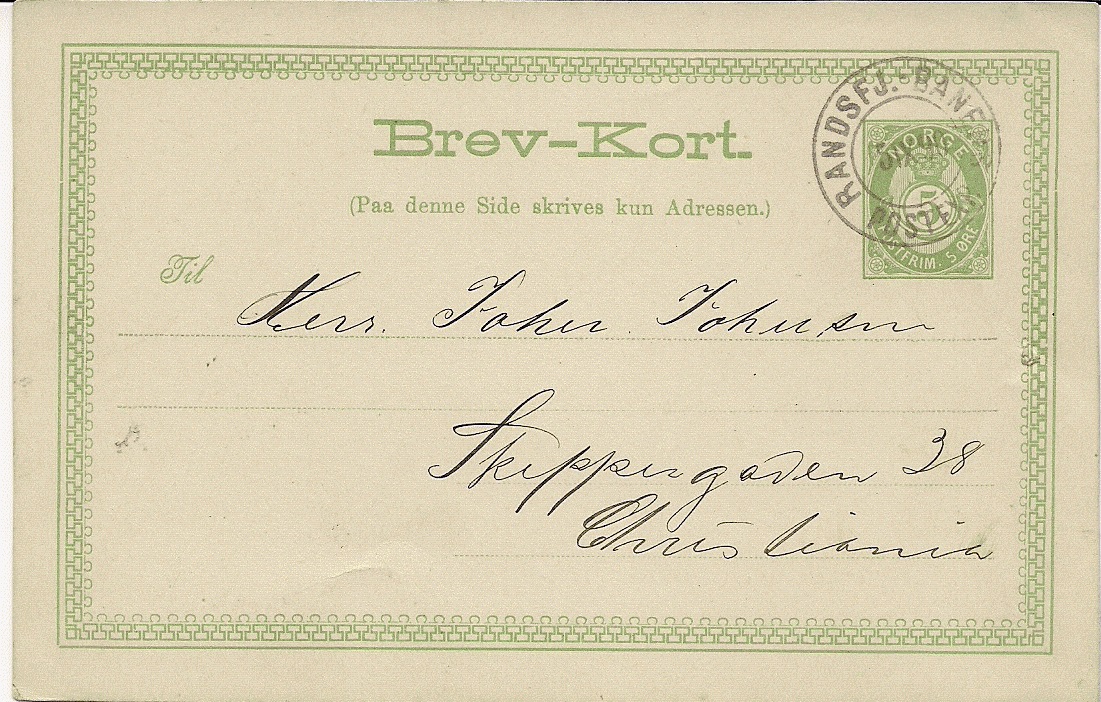 Brev-Kort.
RANDSFJ.-BANENS
POSTEXP
NORGE
5
POSTFRIM. 5 ØRE
(Paa denne Side skrives kun Adressen.)
Til
Herr. Johan Johnsen
Skippergaden 38
Christiania